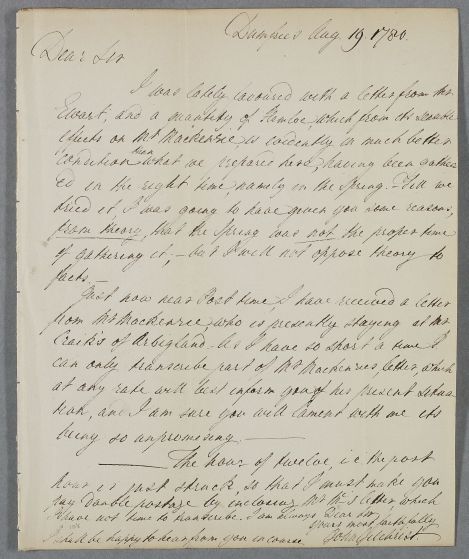 Dumfries Aug. 19 1780.
Dear Sir
I was lately favoured with a letter from Mr
Ewart, and a quantity of which from its sensible
effects on Mr Mackenzie is evidently in much better
condition than what we prepared here, having been gather
ed in the right time namely in the Spring. Till we
tried it, I was going to have given you some reasons,
from theory, that the Spring was not the proper time
of gathering it, – but I will not oppose theory to
facts. –
Just now near Post time, I have received a letter
from Mr Mackenzie, who is presently staying at Mr
Craik's of Arbigland. As I have so short a time I
can only transcribe part of Mr Mackenzies letter, which
at any rate will best inform you of his present situa
tion, and I am sure you will lament with me its
being so unpromising. –
– The hour of twelve, i.e. the post
hour is just struck, so that I must make you
pay double postage by inclosing Mr letter, which
I have not time to transcribe. I am always Dear Sir
yours most faithfully
I shall be happy to hear from you in course
John Gilchrist